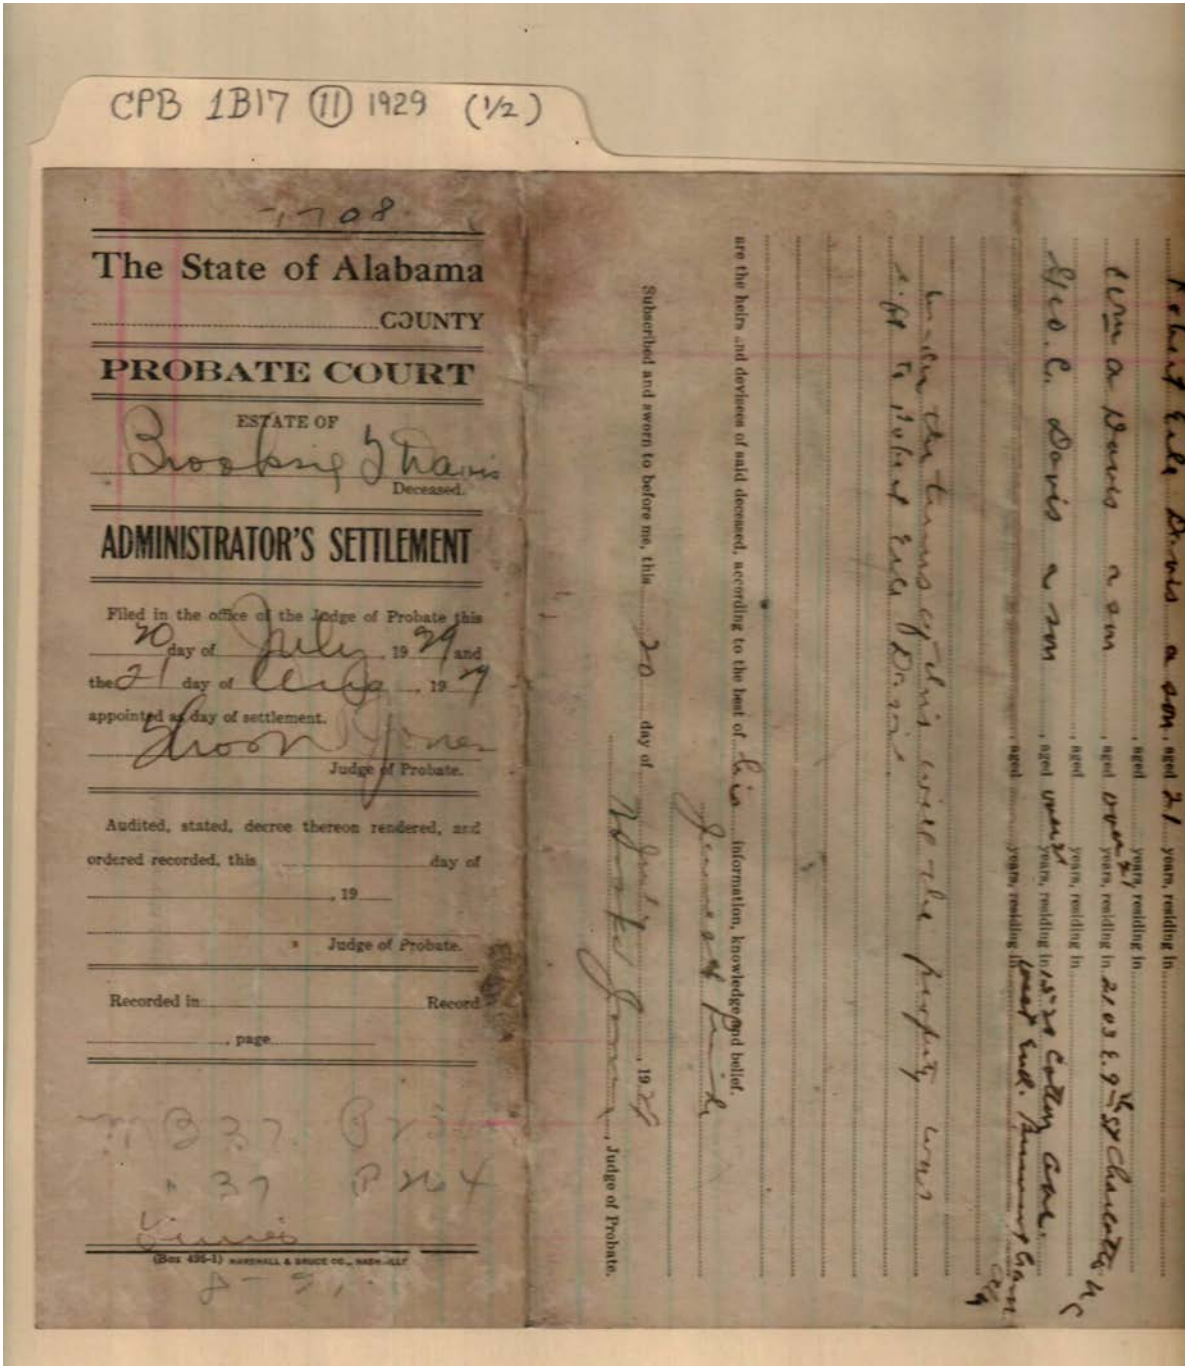 CPB 1B17 (11) 1929 (1/2)
1708
The State of Alabama
COUNTY
PROBATE COURT
ESTATE OF
Davis
Deceased.
ADMINISTRATOR'S SETTLEMENT
Filed in the office of the Judge of Probate this
20 day of July 1929 and
the 21 day of Aug, 1929
appointed as day of settlement.
Jones
Judge of Probate.
Audited, stated, decree thereon rendered, and
ordered recorded, this day of
, 19
Judge of Probate.
Recorded in Record
, page
B 37. P
" 37 P 264
(Box 495-1) MARSHALL & BRUCE CO., NASHVILLE
8 - 21
Robert Earle Davis a son, aged 21 years, residing in
, aged years, residing in
a Davis a son, aged over 21 years, residing in 2103 E. 9th St Charlotte N C
, aged years, residing in
Geo. C. Davis a son, aged over 21 years, residing in 1528 Cotton Ave.
, aged years, residing in West End. Birmingham
under the terms of this will the property was
left to Robert Earle Davis.
are the heirs and devisees of said deceased, according to the best of his information, knowledge and belief.
Subscribed and sworn to before me, this 20 day of July, 1929
Jones, Judge of Probate.